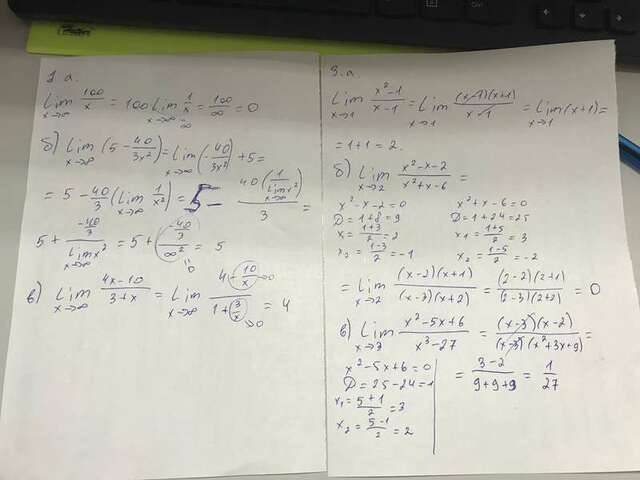 1 а.
lim x→∞ 100/x = 100 lim x→∞ 1/x = 100/∞ = 0
б) lim x→∞ (5 - 40/3x²) = lim x→∞ (-40/3x²) + 5 =
= 5 - 40/3 (lim x→∞ 1/x²) = 5 - 40(1/lim x→∞ x²)/3 =
5 + (-40/3)/(lim x→∞ x²) = 5 + (-40/3)/∞² = 5
0
в) lim x→∞ (4x-10)/(3+x) = lim x→∞ (4 - 10/x →0)/(1 + 3/x →0) = 4
3. а
lim x→1 (x²-1)/(x-1) = lim x→1 (x-1)(x+1)/(x-1) = lim x→1 (x+1) =
= 1+1 = 2.
б) lim x→2 (x²-x-2)/(x²+x-6) =
x²-x-2=0 x²+x-6=0
D=1+8=9 D=1+24=25
x₁=(1+3)/2=2 x₁=(1+5)/2=3
x₂=(1-3)/2=-1 x₂=(1-5)/2=-2
= lim x→2 (x-2)(x+1)/(x-3)(x+2) = (2-2)(2+1)/(2-3)(2+2) = 0
в) lim x→3 (x²-5x+6)/(x³-27) = (x-3)(x-2)/(x-3)(x²+3x+9) =
x²-5x+6=0 = (3-2)/(9+9+9) = 1/27
D=25-24=1
x₁=(5+1)/2=3
x₂=(5-1)/2=2